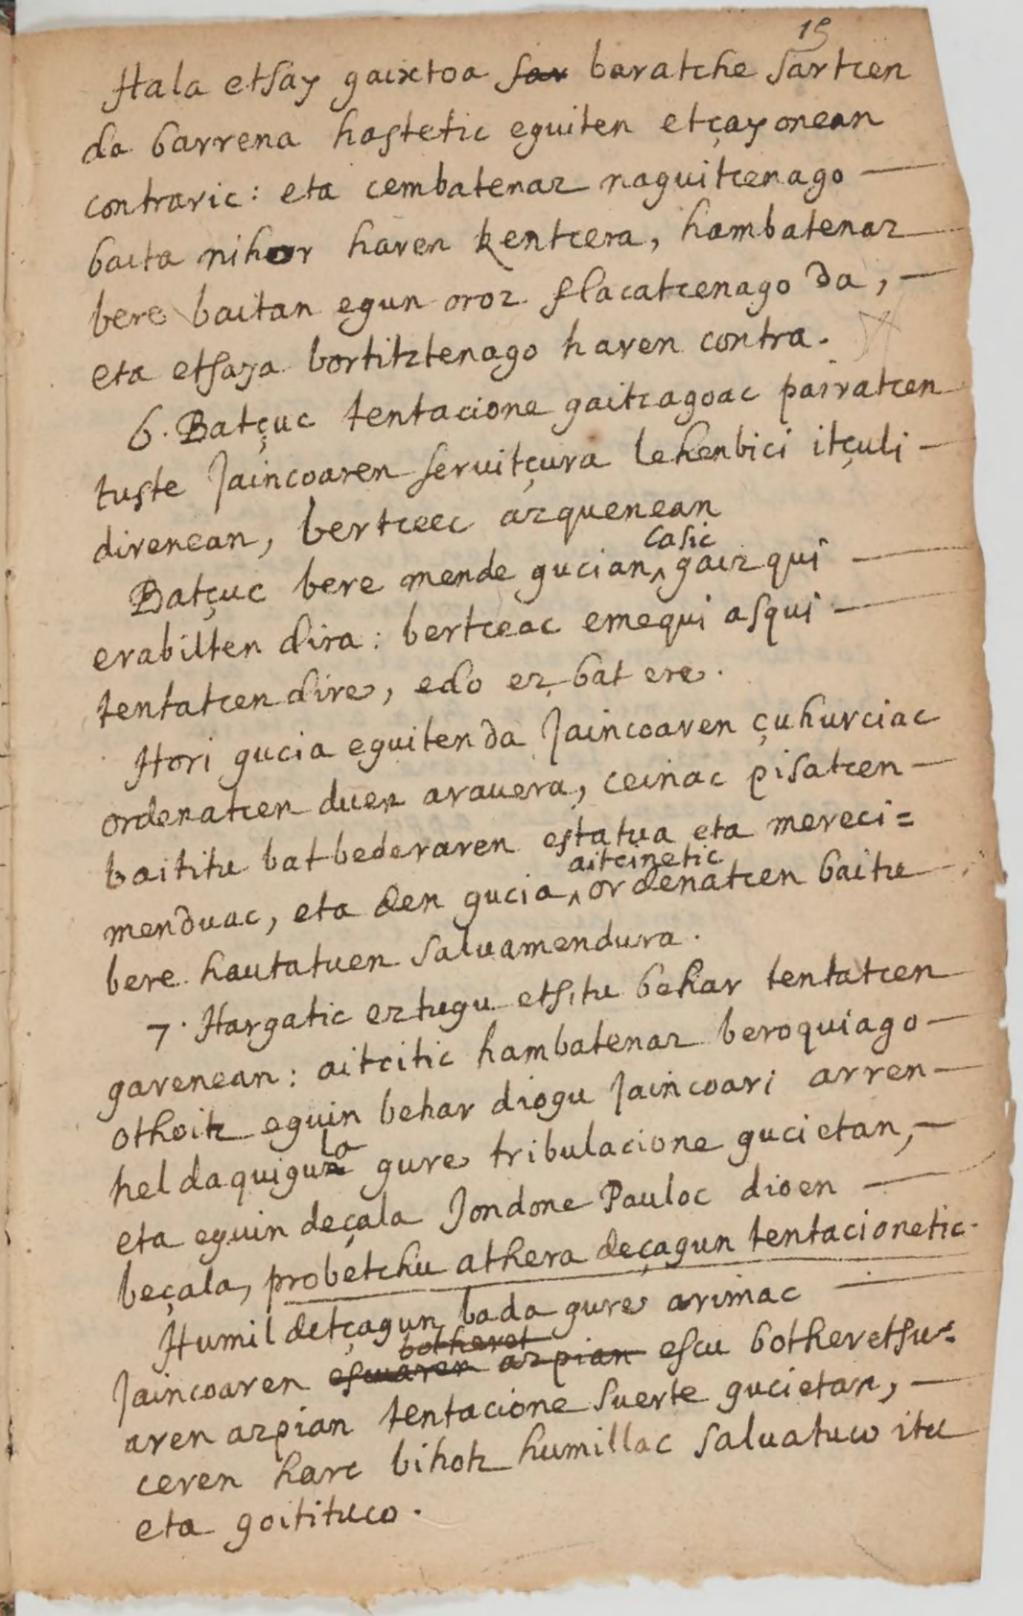 15
Hala etsay gaixtoa sar baratche sartcen
da barrena hastetic eguiten etçayonean
contraric: eta cembatenaz naguitcenago —
baita nihor haren kentcera, hambatenaz
bere baitan egun oroz flacatcenago da, —
eta etsaya bortitztenago haren contra.
6. Batçuc tentacione gaitzagoac pairatcen
tuste Jaincoaren servitçura lehenbici itçuli —
direnean, bertceec azquenean
casic
Batçuc bere mende gucian ^ gaizqui —
erabilten dira: bertceac emequi asqui —
tentatcen dire, edo ez bat ere.
Hori gucia eguiten da Jaincoaren çuhurciac
ordenatcen duen arauera, ceinac pisatcen —
baititu batbederaren estatua eta mereci=
aitcinetic
menduac, eta den gucia ^ ordenatcen baitu —
bere hautatuen salvamendura.
7. Hargatic eztugu etsitu behar tentatcen
garenean: aitcitic hambatenaz beroquiago —
othoitz eguin behar diogu Jaincoari arren —
la
hel daquigun gure tribulacione gucietan, —
eta eguin deçala Jondone Pauloc dioen —
beçala, probetchu athera deçagun tentacionetic.
Humil detçagun bada gure arimac —
botheret
Jaincoaren escuaren azpian escu botheretsu=
aren azpian tentacione suerte gucietan, —
ceren harc bihotz humillac salvatuco itu
eta goitituco.